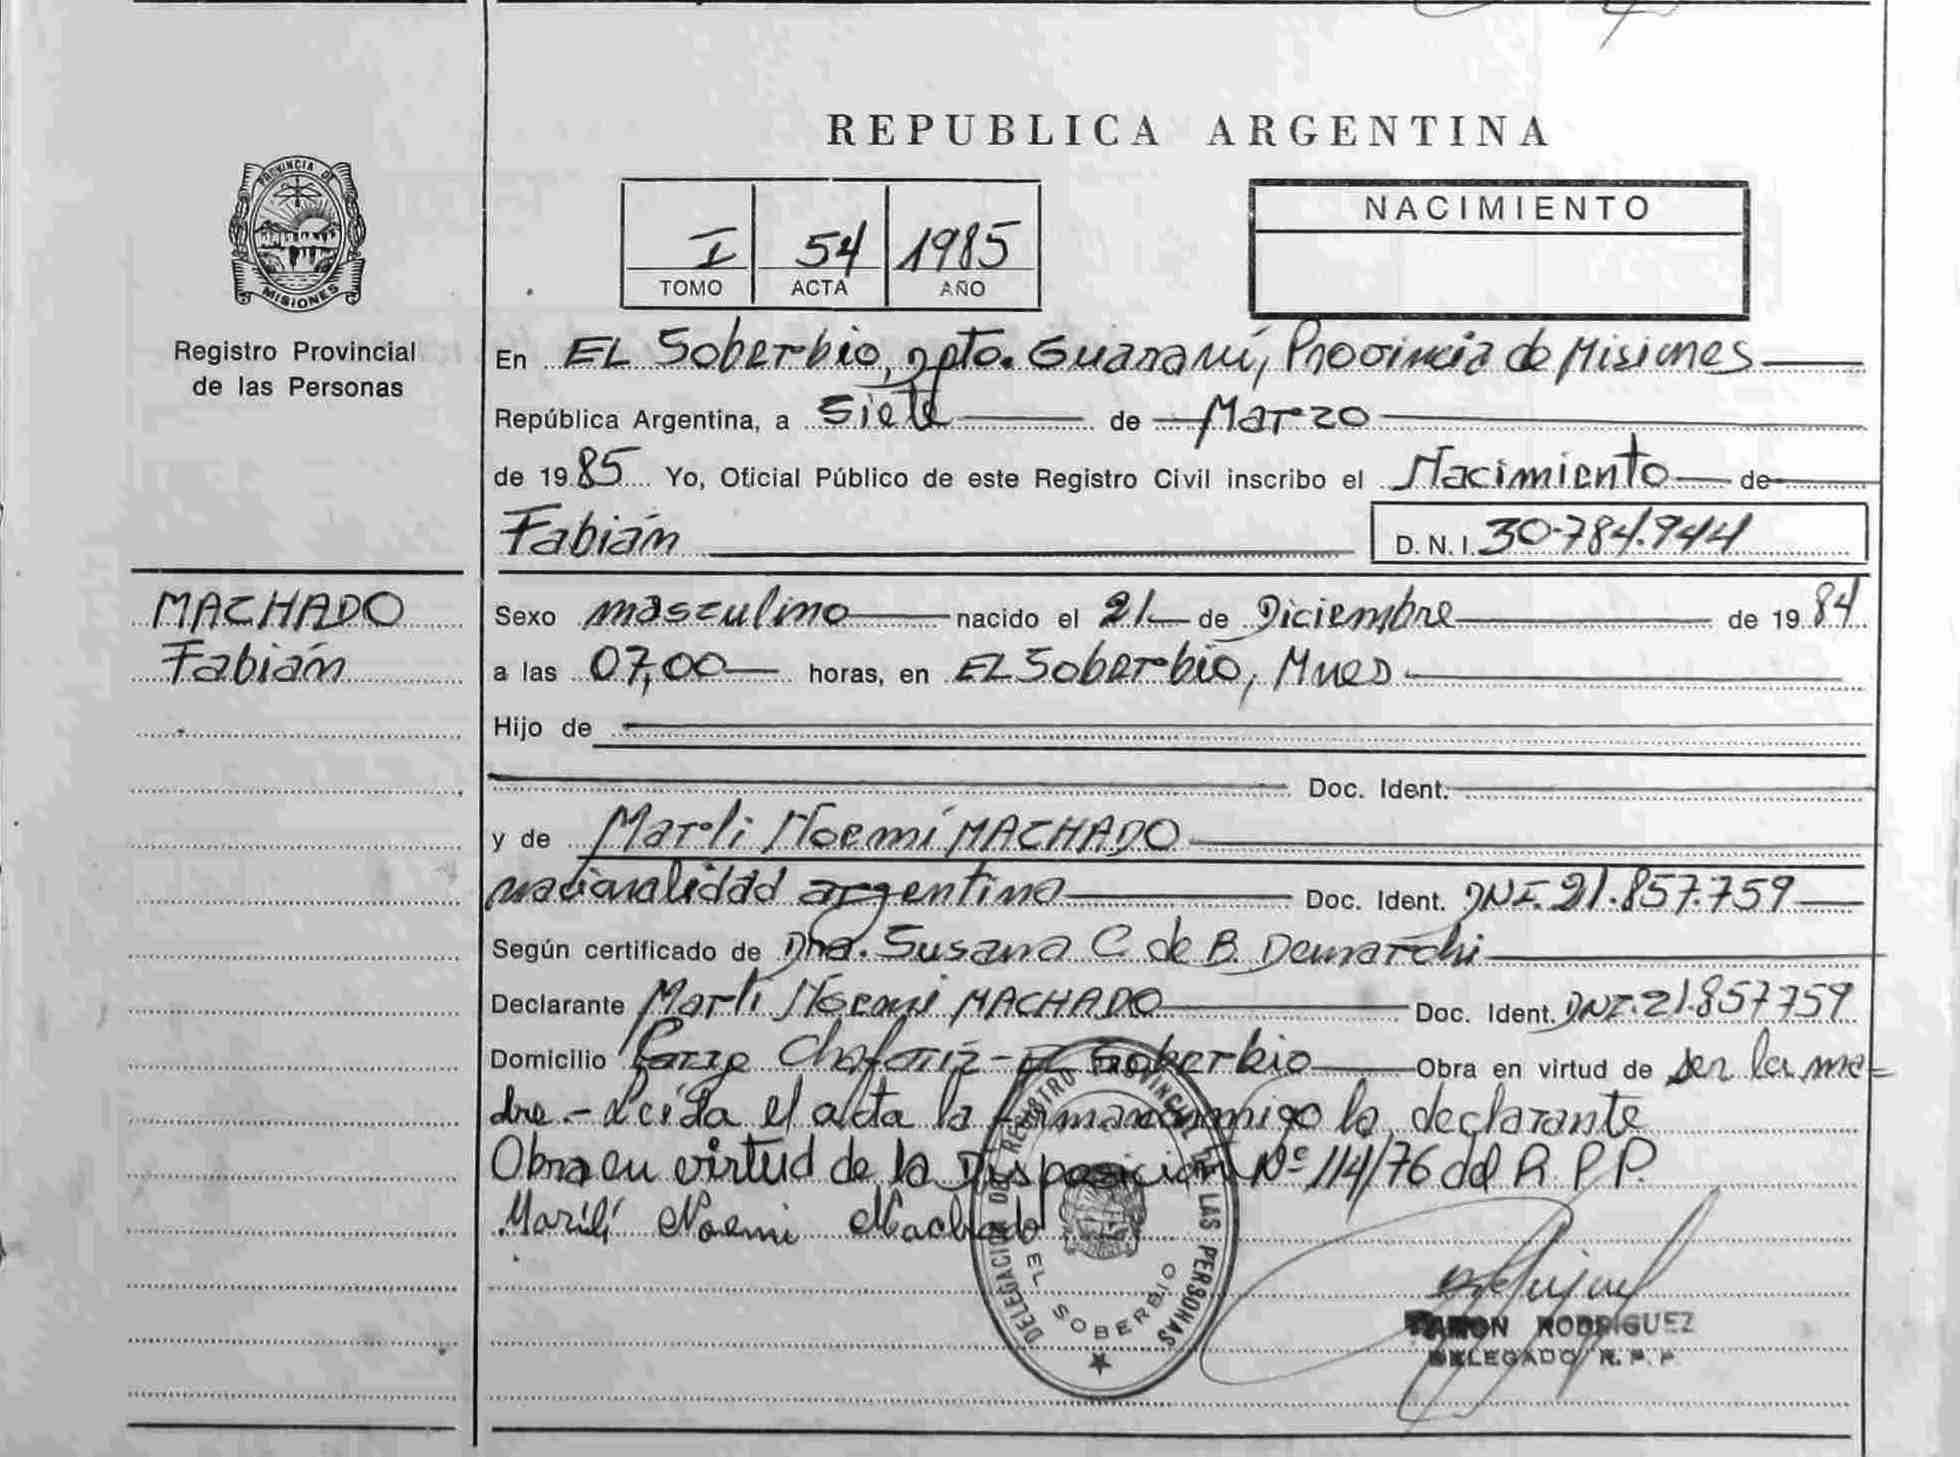 REPUBLICA ARGENTINA
PROVINCIA DE
MISIONES
Registro Provincial
de las Personas
I 54 1985
TOMO ACTA AÑO
NACIMIENTO
En EL Soberbio, Dpto. Guaraní, Provincia de Misiones
República Argentina, a Siete de Marzo
de 1985 Yo, Oficial Público de este Registro Civil inscribo el Nacimiento de
Fabián D.N.I. 30.784.944
MACHADO
Fabián
Sexo masculino nacido el 21 de Diciembre de 1984
a las 07,00 horas, en EL Soberbio, Mnes
Hijo de
Doc. Ident.
y de Marli Noemí MACHADO
nacionalidad argentina Doc. Ident. DNI. 21.857.759
Según certificado de Dra. Susana C. de B. Demarchi
Declarante Marli Noemi MACHADO Doc. Ident. DNI. 21.857759
Domicilio El Soberbio Obra en virtud de ser la ma=
dre.- Leída el acta la firma conmigo la declarante
Obra en virtud de la Disposicion Nº 114/76 del R.P.P.
Marili Noemi Machado
DELEGACION DEL REGISTRO PROVINCIAL DE LAS PERSONAS
EL SOBERBIO
RAMON RODRIGUEZ
DELEGADO R.P.P.